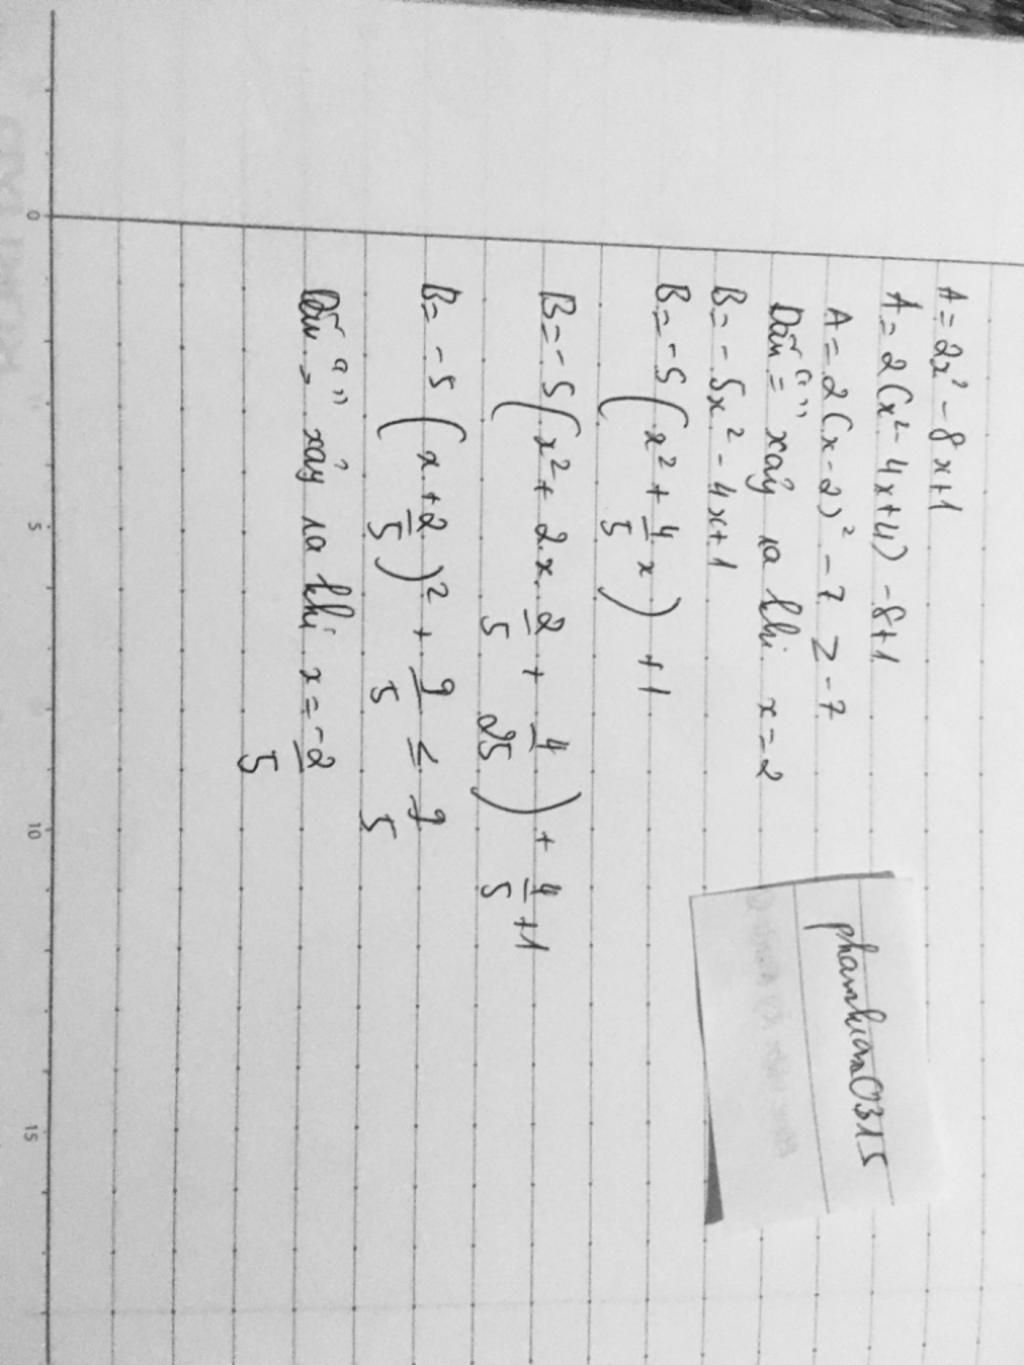 A = 2x² - 8x+1
A = 2(x² - 4x+4) - 8+1
A = 2(x-2)² - 7 ≥ -7
Dấu "=" xảy ra khi x=2
B = -5x² - 4x+1
B = -5(x² + 4/5 x) + 1
B = -5(x² + 2.x. 2/5 + 4/25) + 4/5 + 1
B = -5(x + 2/5)² + 9/5 ≤ 9/5
Dấu "=" xảy ra khi x = -2/5
0 5 10 15